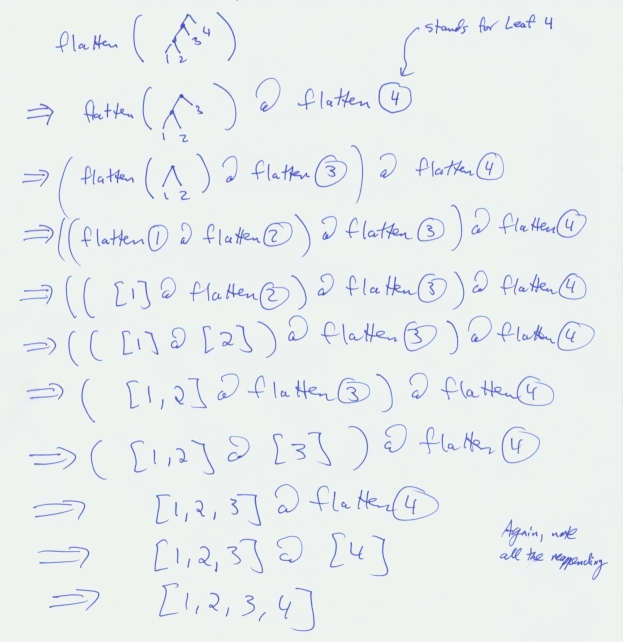 flatten ( 1 2 3 4 )
stands for Leaf 4
⇒ flatten ( 1 2 3 ) @ flatten ④
⇒ ( flatten ( 1 2 ) @ flatten ③ ) @ flatten ④
⇒ (( flatten ① @ flatten ② ) @ flatten ③ ) @ flatten ④
⇒ (( [1] @ flatten ② ) @ flatten ③ ) @ flatten ④
⇒ (( [1] @ [2] ) @ flatten ③ ) @ flatten ④
⇒ ( [1,2] @ flatten ③ ) @ flatten ④
⇒ ( [1,2] @ [3] ) @ flatten ④
⇒ [1,2,3] @ flatten ④
⇒ [1,2,3] @ [4]
⇒ [1,2,3,4]
Again, note
all the reappending